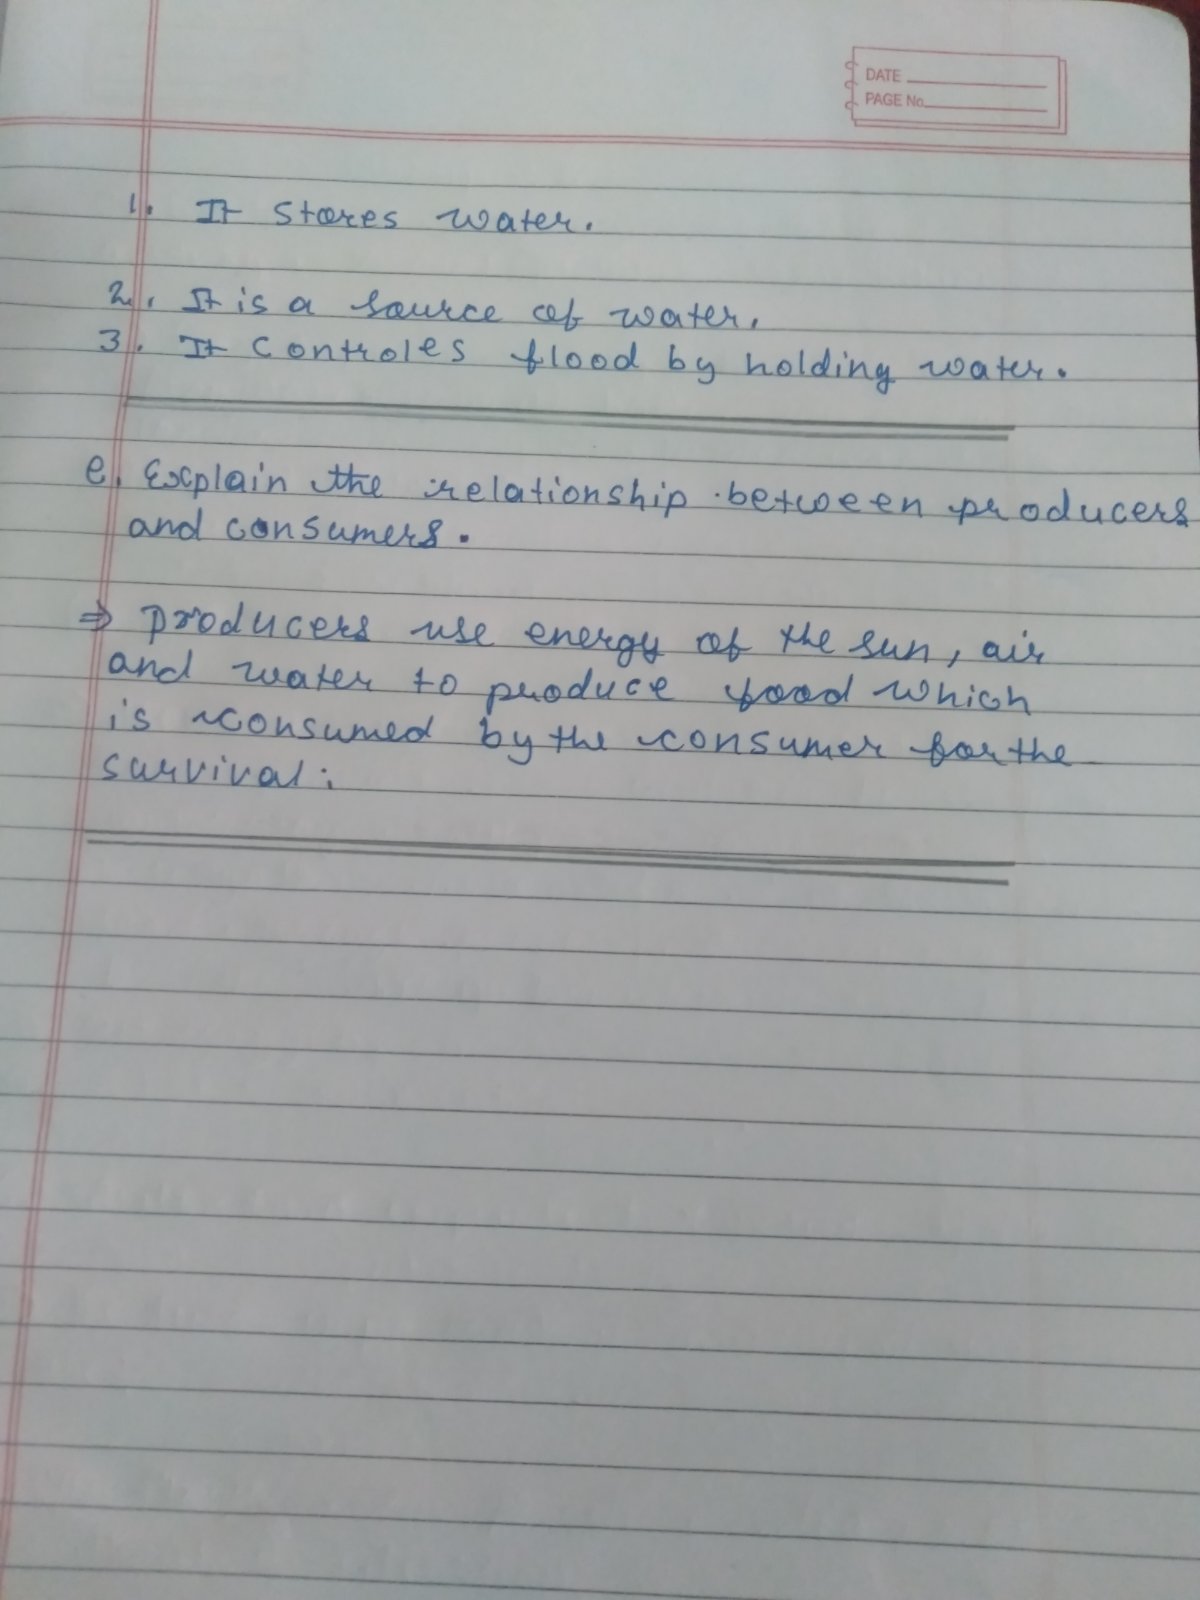 DATE
PAGE No.
1. It stores water.
2. It is a source of water.
3. It controles flood by holding water.
e. Explain the relationship between producers
and consumers.
⇒ Producers use energy of the sun, air
and water to produce food which
is consumed by the consumer for the
survival.